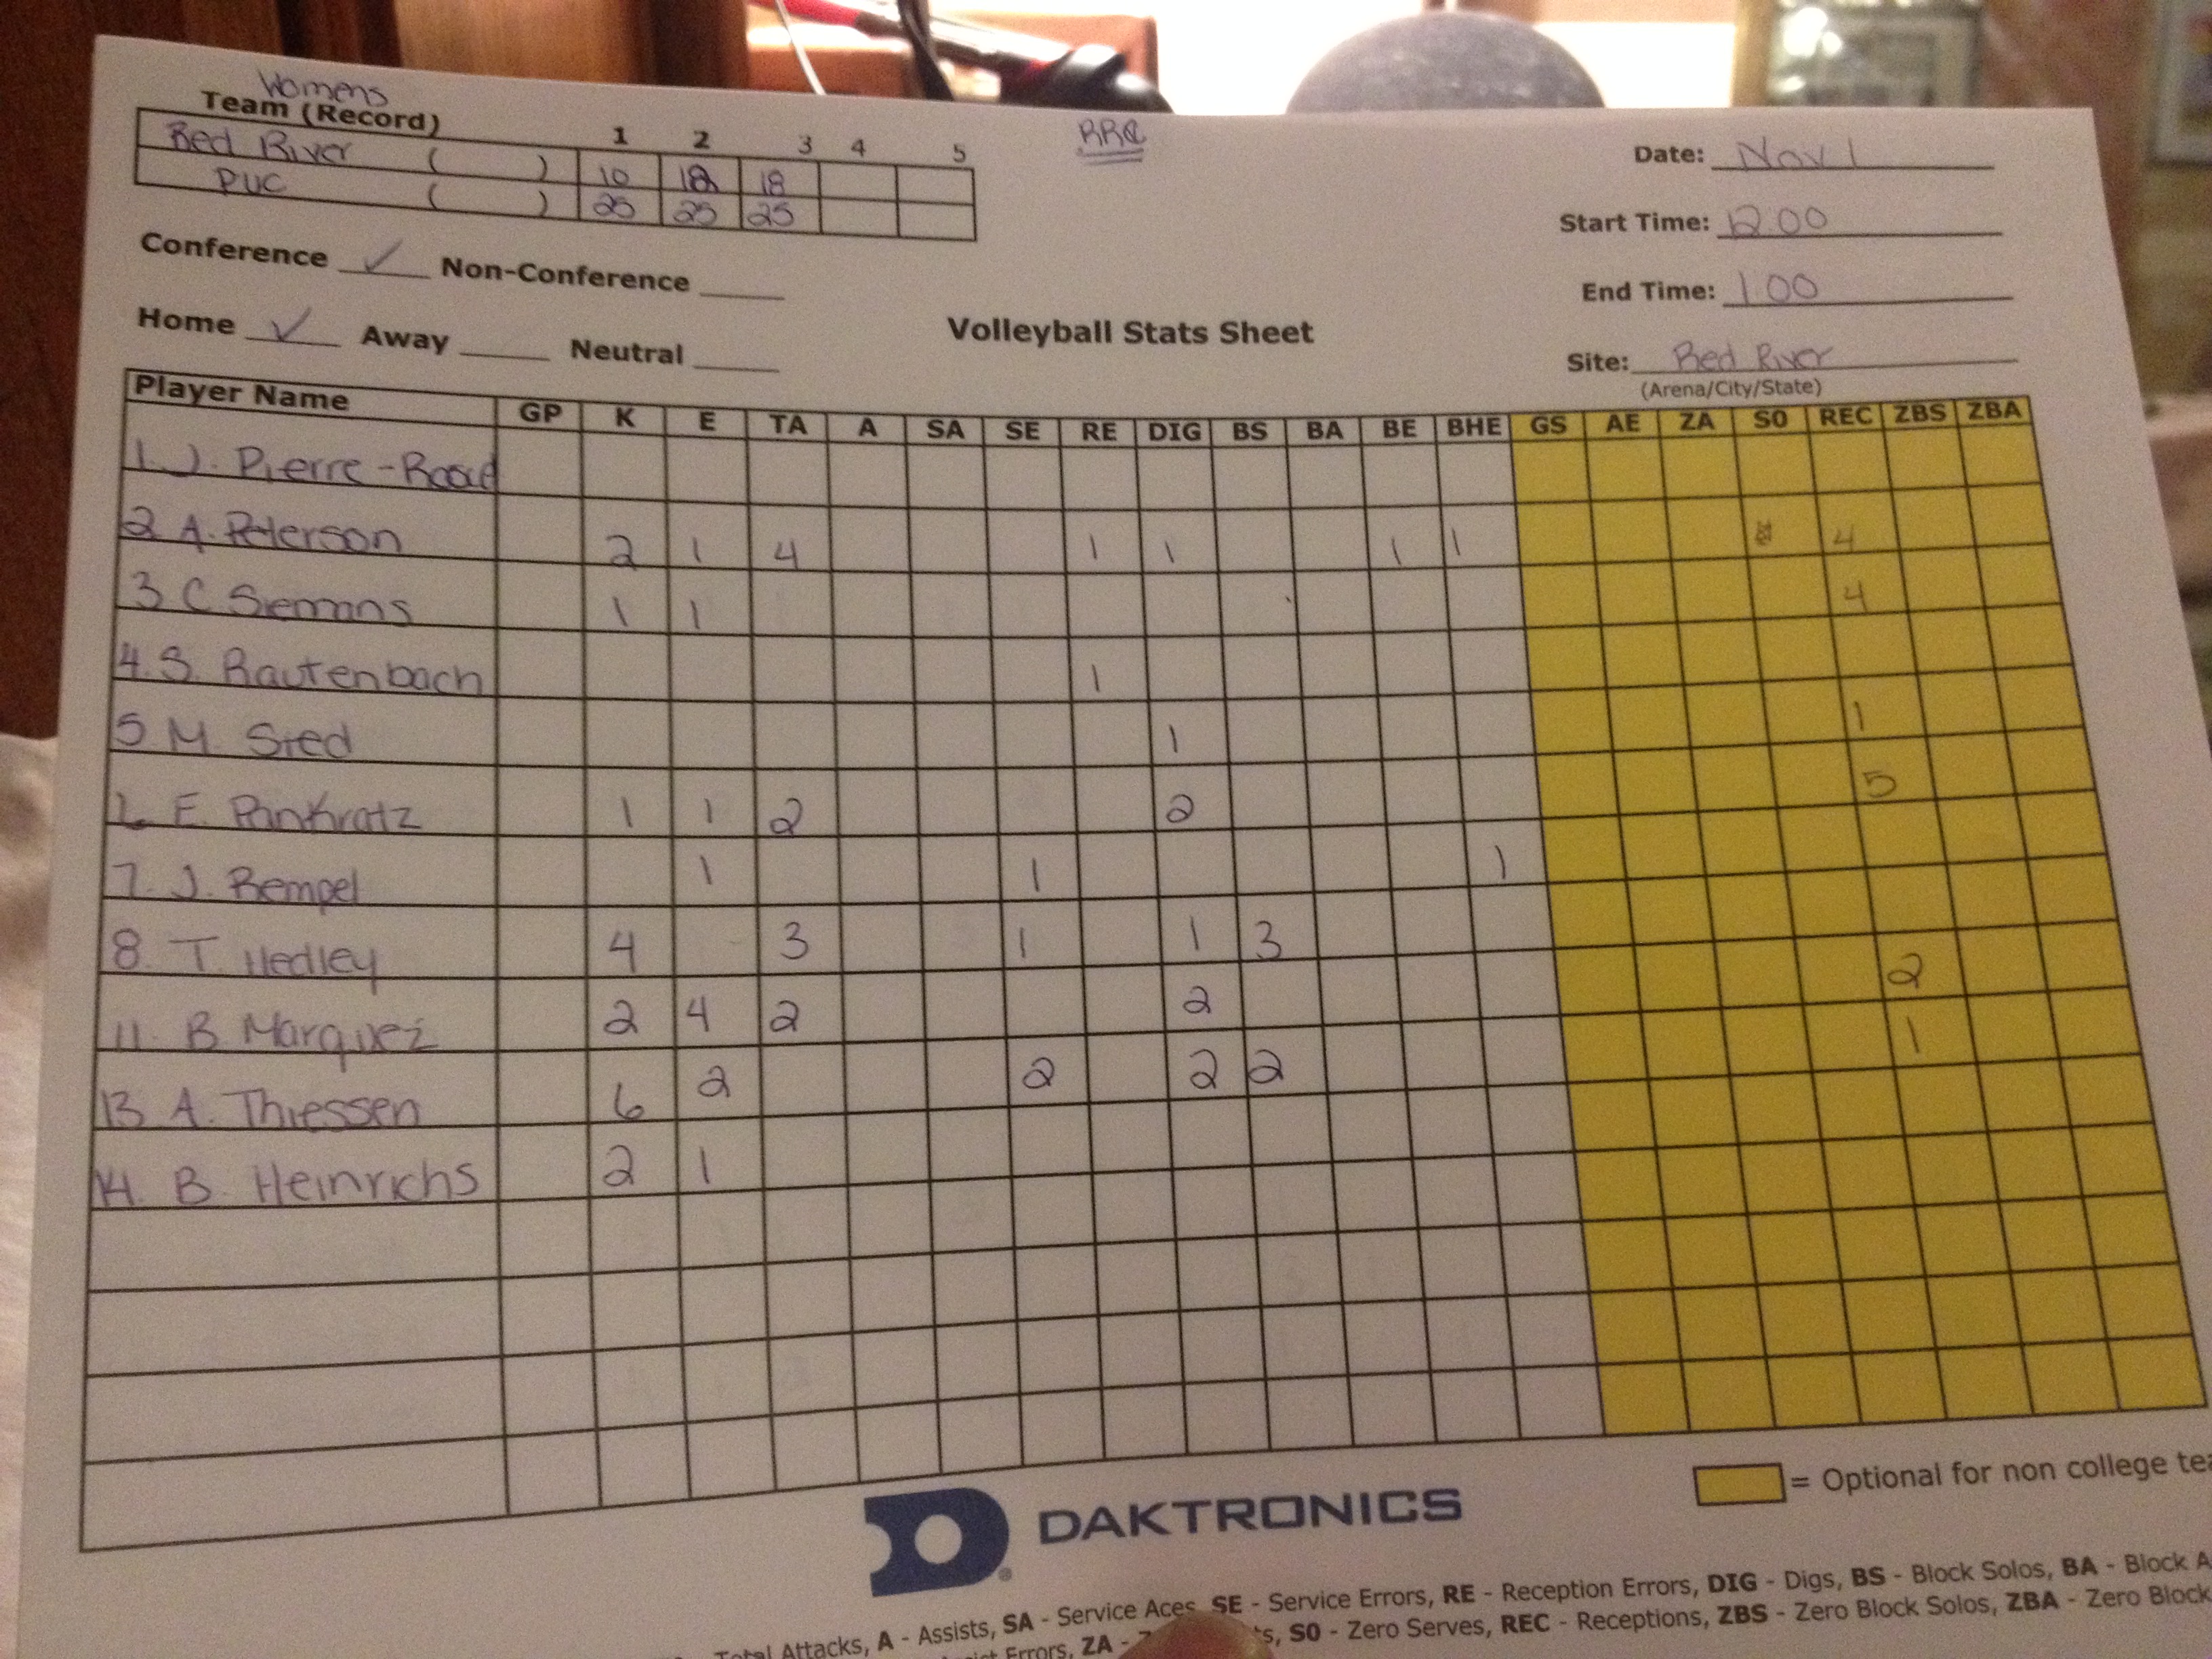 Womens
Team (Record) 1 2 3 4 5
Red River ( ) 10 18 18
PUC ( ) 25 25 25
RRC
Date: Nov 1
Start Time: 12.00
End Time: 1.00
Site: Red River
(Arena/City/State)
Conference ✓ Non-Conference
Home ✓ Away Neutral
Volleyball Stats Sheet
Player Name GP K E TA A SA SE RE DIG BS BA BE BHE GS AE ZA S0 REC ZBS ZBA
1. J. Pierre-
2 A. Peterson 2 1 4 1 1 1 1 4
3 C Siemans 1 1 4
4. S. Rautenbach 1
5 M Sied 1 1
6 E Pankratz 1 1 2 2 5
7. J. Rempel 1 1 1
8. T. Hedley 4 3 1 1 3
11. B Marquez 2 4 2 2 2
13 A. Thiessen 6 2 2 2 2 1
14. B. Heinrichs 2 1
= Optional for non college
DAKTRONICS
Total Attacks, A - Assists, SA - Service Aces, SE - Service Errors, RE - Reception Errors, DIG - Digs, BS - Block Solos, BA - Block
Errors, ZA - S0 - Zero Serves, REC - Receptions, ZBS - Zero Block Solos, ZBA - Zero Block